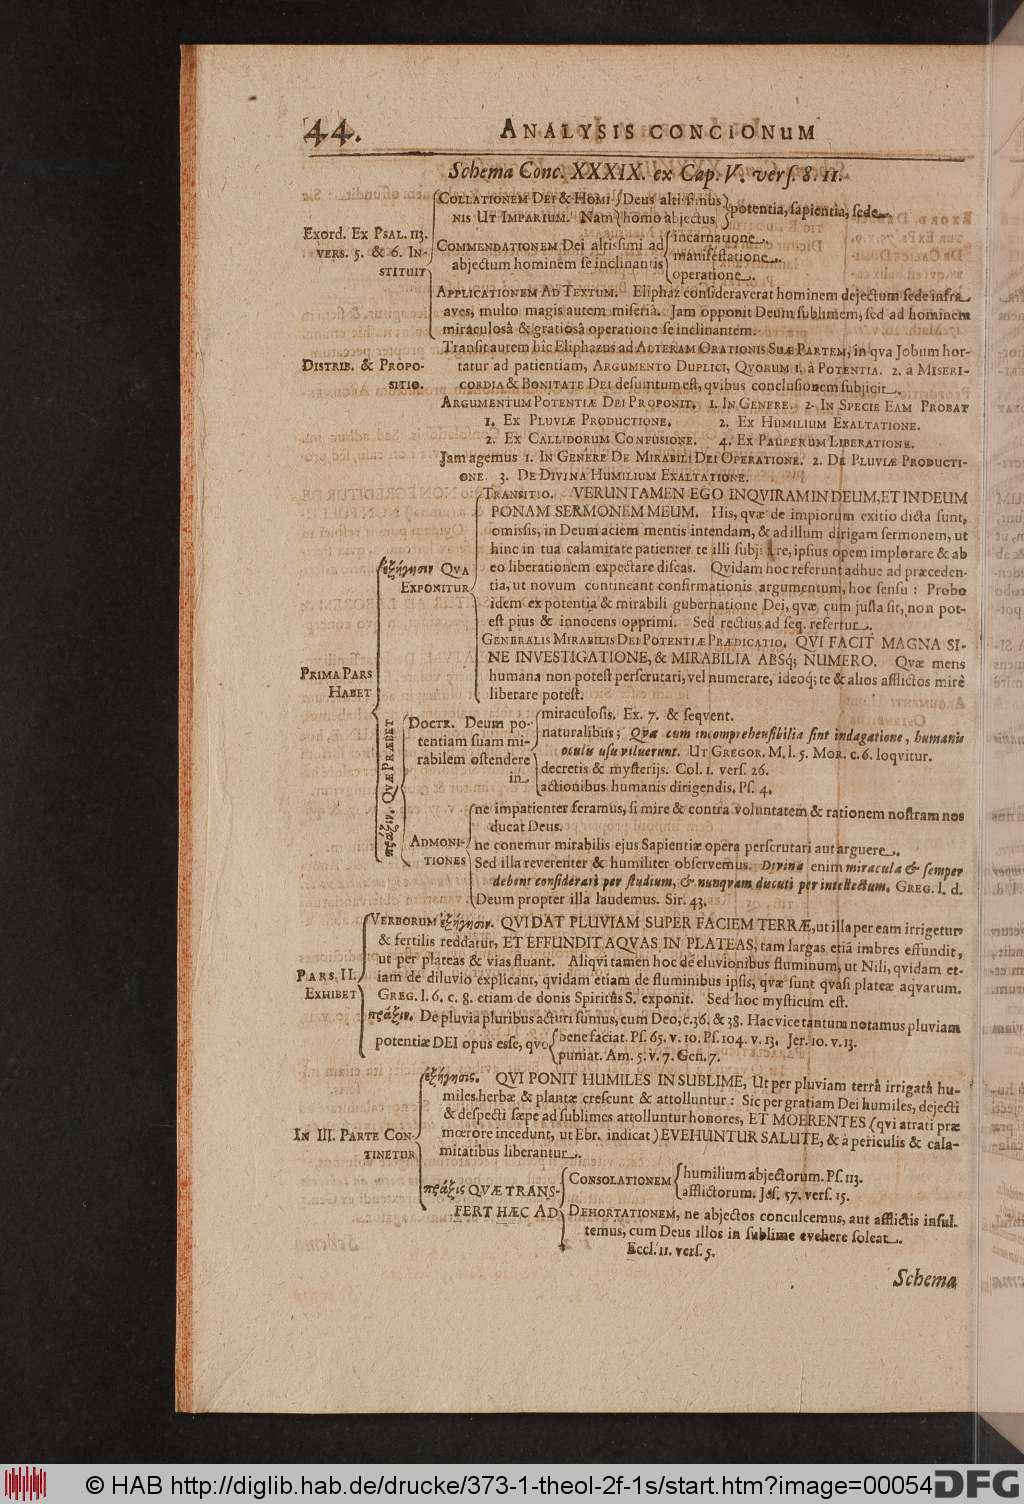 44.
ANALYSIS CONCIONUM
Schema Conc. XXXIX. ex Cap. V. vers. 8. 11.
Exord. Ex Psal. 113.
vers. 5. & 6. In-
stituit
Collationem Dei & Homi-
nis Ut Imparium. Nam
Deus altissimus
homo abjectus
potentia, sapientia, sede.
Commendationem Dei altissimi ad
abjectum hominem se inclinantis
incarnatione.
manifestatione.
operatione.
Applicationem Ad Textum. Eliphaz consideraverat hominem dejectum sede infra
aves, multo magis autem miseriâ. Jam opponit Deum sublimem, sed ad hominem
miraculosâ & gratiosâ operatione se inclinantem.
Distrib. & Propo-
sitio.
Transit autem hîc Eliphazus ad Alteram Orationis Suæ Partem, in qva Jobum hor-
tatur ad patientiam, Argumento Duplici, Qvorum 1. à Potentia. 2. à Miseri-
cordia & Bonitate Dei desumtum est, qvibus conclusionem subjicit.
Argumentum Potentiæ Dei Proponit, 1. In Genere. 2. In Specie Eam Probat
1. Ex Pluviæ Productione. 2. Ex Humilium Exaltatione.
2. Ex Callidorum Confusione. 4. Ex Pauperum Liberatione.
Jam agemus 1. In Genere De Mirabili Dei Operatione. 2. De Pluviæ Producti-
one. 3. De Divina Humilium Exaltatione.
Prima Pars
Habet
ἐξήγησιν Qva
Exponitur
Transitio. VERUNTAMEN EGO INQVIRAM IN DEUM, ET IN DEUM
PONAM SERMONEM MEUM. His, qvæ de impiorum exitio dicta sunt,
omissis, in Deum aciem mentis intendam, & ad illum dirigam sermonem, ut
hinc in tua calamitate patienter te illi subjicere, ipsius opem implorare & ab
eo liberationem expectare discas. Qvidam hoc referunt adhuc ad præceden-
tia, ut novum contineant confirmationis argumentum, hoc sensu: Probo
idem ex potentia & mirabili gubernatione Dei, qvæ, cum justa sit, non pot-
est pius & innocens opprimi. Sed rectius ad seq. refertur.
Generalis Mirabilis Dei Potentiæ Prædicatio, QVI FACIT MAGNA SI-
NE INVESTIGATIONE, & MIRABILIA ABSq; NUMERO. Qvæ mens
humana non potest perscrutari, vel numerare, ideoq; te & alios afflictos mirè
liberare potest.
πράξιν, Qvæ Præbet
Doctr. Deum po-
tentiam suam mi-
rabilem ostendere
in
miraculosis. Ex. 7. & seqvent.
naturalibus; Qvæ cum incomprehensibilia sint indagatione, humanis
oculis usu viluerunt. Ut Gregor. M. l. 5. Mor. c. 6. loqvitur.
decretis & mysterijs. Col. 1. vers. 26.
actionibus humanis dirigendis. Ps. 4.
Admoni-
tiones
ne impatienter feramus, si mire & contra voluntatem & rationem nostram nos
ducat Deus.
ne conemur mirabilis ejus Sapientiæ opera perscrutari aut arguere.
Sed illa reverenter & humiliter observemus. Divina enim miracula & semper
debent considerari per studium, & nunqvam discuti per intellectum, Greg. l. d.
Deum propter illa laudemus. Sir. 43.
Pars II.
Exhibet
Verborum ἐξήγησιν. QVI DAT PLUVIAM SUPER FACIEM TERRÆ, ut illa per eam irrigetur
& fertilis reddatur, ET EFFUNDIT AQVAS IN PLATEAS, tam largas etiā imbres effundit,
ut per plateas & vias fluant. Aliqvi tamen hoc de eluvionibus fluminum, ut Nili, qvidam et-
iam de diluvio explicant, qvidam etiam de fluminibus ipsis, qvæ sunt qvasi plateæ aqvarum.
Greg. l. 6. c. 8. etiam de donis Spiritûs S. exponit. Sed hoc mysticum est.
πράξιν. De pluvia pluribus acturi sumus, cum Deo, c. 36. & 38. Hac vice tantum notamus pluviam
potentiæ DEI opus esse, qvo
benefaciat. Ps. 65. v. 10. Ps. 104. v. 13. Jer. 10. v. 13.
puniat. Am. 5. v. 7. Gen. 7.
In III. Parte Con-
tinetur
ἐξήγησις. QVI PONIT HUMILES IN SUBLIME, Ut per pluviam terrâ irrigatâ hu-
miles herbæ & plantæ crescunt & attolluntur: Sic per gratiam Dei humiles, dejecti
& despecti sæpe ad sublimes attolluntur honores, ET MOERENTES (qvi atrati præ
mœrore incedunt, ut Ebr. indicat) EVEHUNTUR SALUTE, & à periculis & cala-
mitatibus liberantur.
πράξις QVÆ TRANS-
FERT HÆC AD
Consolationem
humilium abjectorum. Ps. 113.
afflictorum. Jes. 57. vers. 15.
Dehortationem, ne abjectos conculcemus, aut afflictis insul-
temus, cum Deus illos in sublime evehere soleat.
Eccl. 11. vers. 5.
Schema
© HAB http://diglib.hab.de/drucke/373-1-theol-2f-1s/start.htm?image=00054
DFG